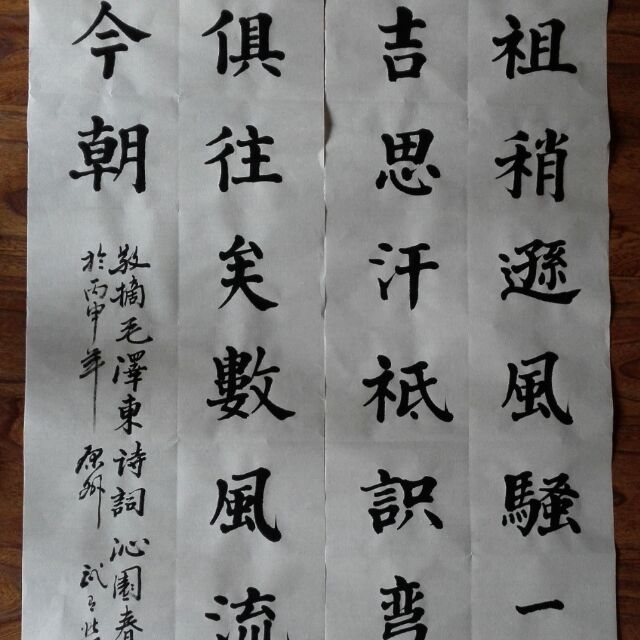 祖稍遜風騷一
吉思汗祇識弯
俱往矣數風流
今朝
敬摘毛澤東诗詞沁園春
於丙申年